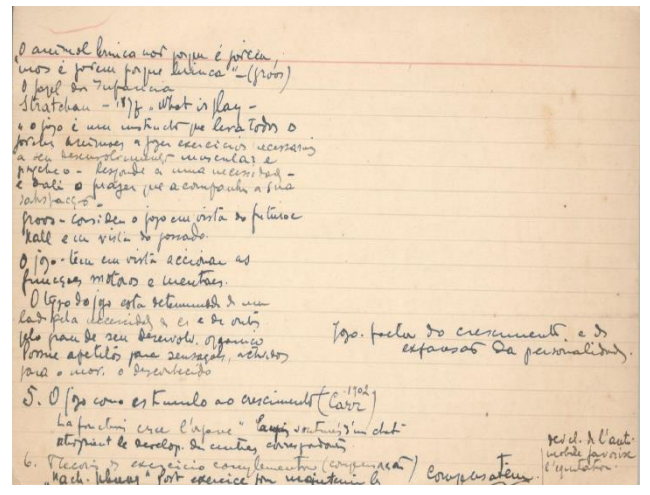 "O animal brinca não porque é joven,
mas é joven porque brinca" - (Groos)
O papel da Infancia
Stratchan - 1877 "What is play -
"o jogo é um instincto que leva todos o
jovens animaes a fazer exercicios necessarios
a seu desenvolvimento muscular e
psychico - Responde a uma necessidade -
e dahi o prazer que acompanha a sua
satisfacção -
Groos - considera o jogo em vista do futuro e
Hall e em vista do passado.
O jogo - tem em vista accionar as
funcções motoras e mentaes.
O typo do jogo esta determinado de um
lado pela necessidade e de outro
pelo grau de seu desenvolv. organico
apetites para sensações,
para o mov. o desconhecido
Jogo - factor do crescimento e da
expansão da personalidade.
5. O jogo como estimulo ao crescimento (Carr 1902)
La fonction crée l'organe"
le develop. de centres
6. Theoria do exercicio complementar (compensação)
exercice pour maintenir la
l'auto-
mobile favorise
l'equitation.